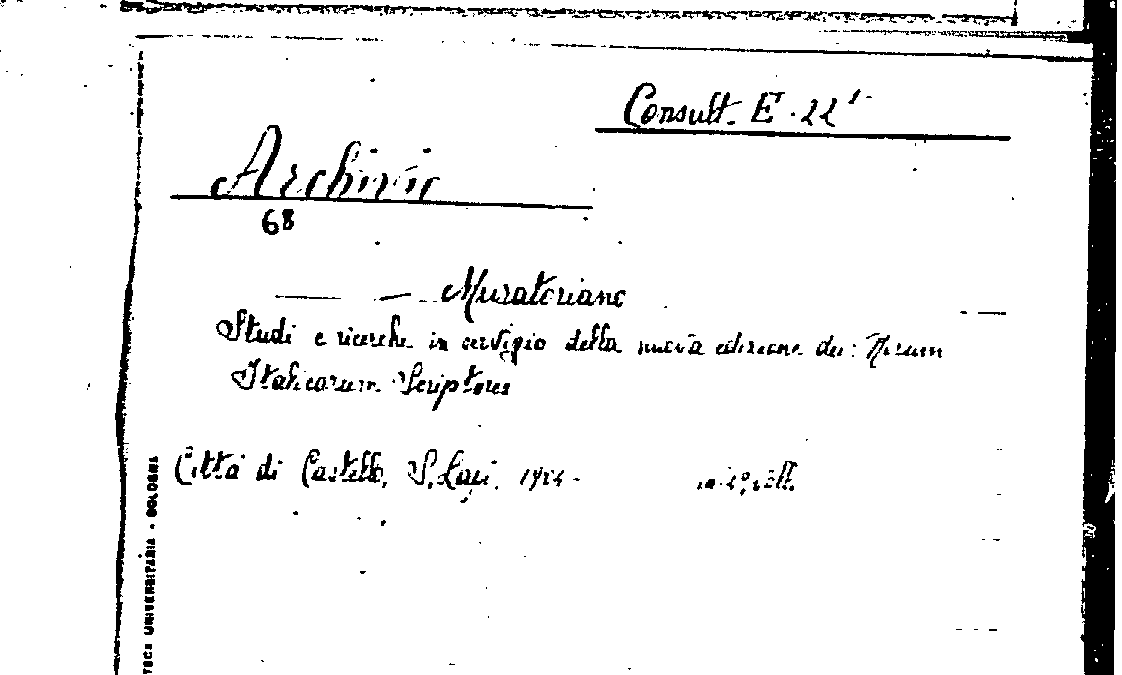 Consult. E. 22'
Archivio
68
Muratoriano
Studi e ricerche in servigio della nuova edizione dei: Rerum
Italicarum Scriptores
Città di Castello, S. Lapi,
in 4°,
TECA UNIVERSITARIA • BOLOGNA